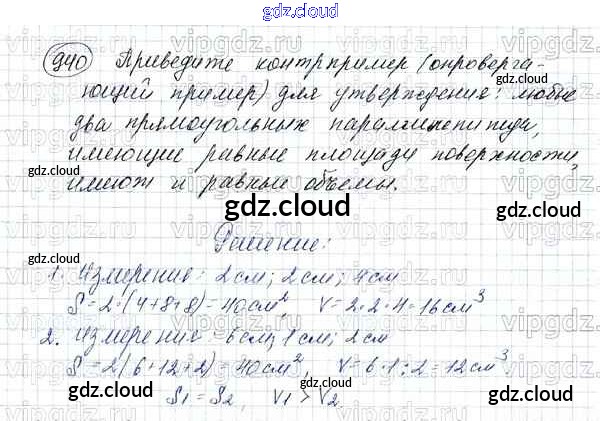 gdz.cloud
940 Приведите контрпример (опроверга-
ющий пример) для утверждения: любые
два прямоугольных параллелепипеда,
имеющие равные площади поверхности,
имеют и равные объемы.
gdz.cloud
Решение:
1. Измерение: 2 см; 2 см; 4 см
S = 2·(4+8+8) = 40 см², V = 2·2·4 = 16 см³
2. Измерение: 6 см; 1 см; 2 см
S = 2(6+12+2) = 40 см², V = 6·1:2 = 12 см³.
S1 = S2, V1 > V2
gdz.cloud